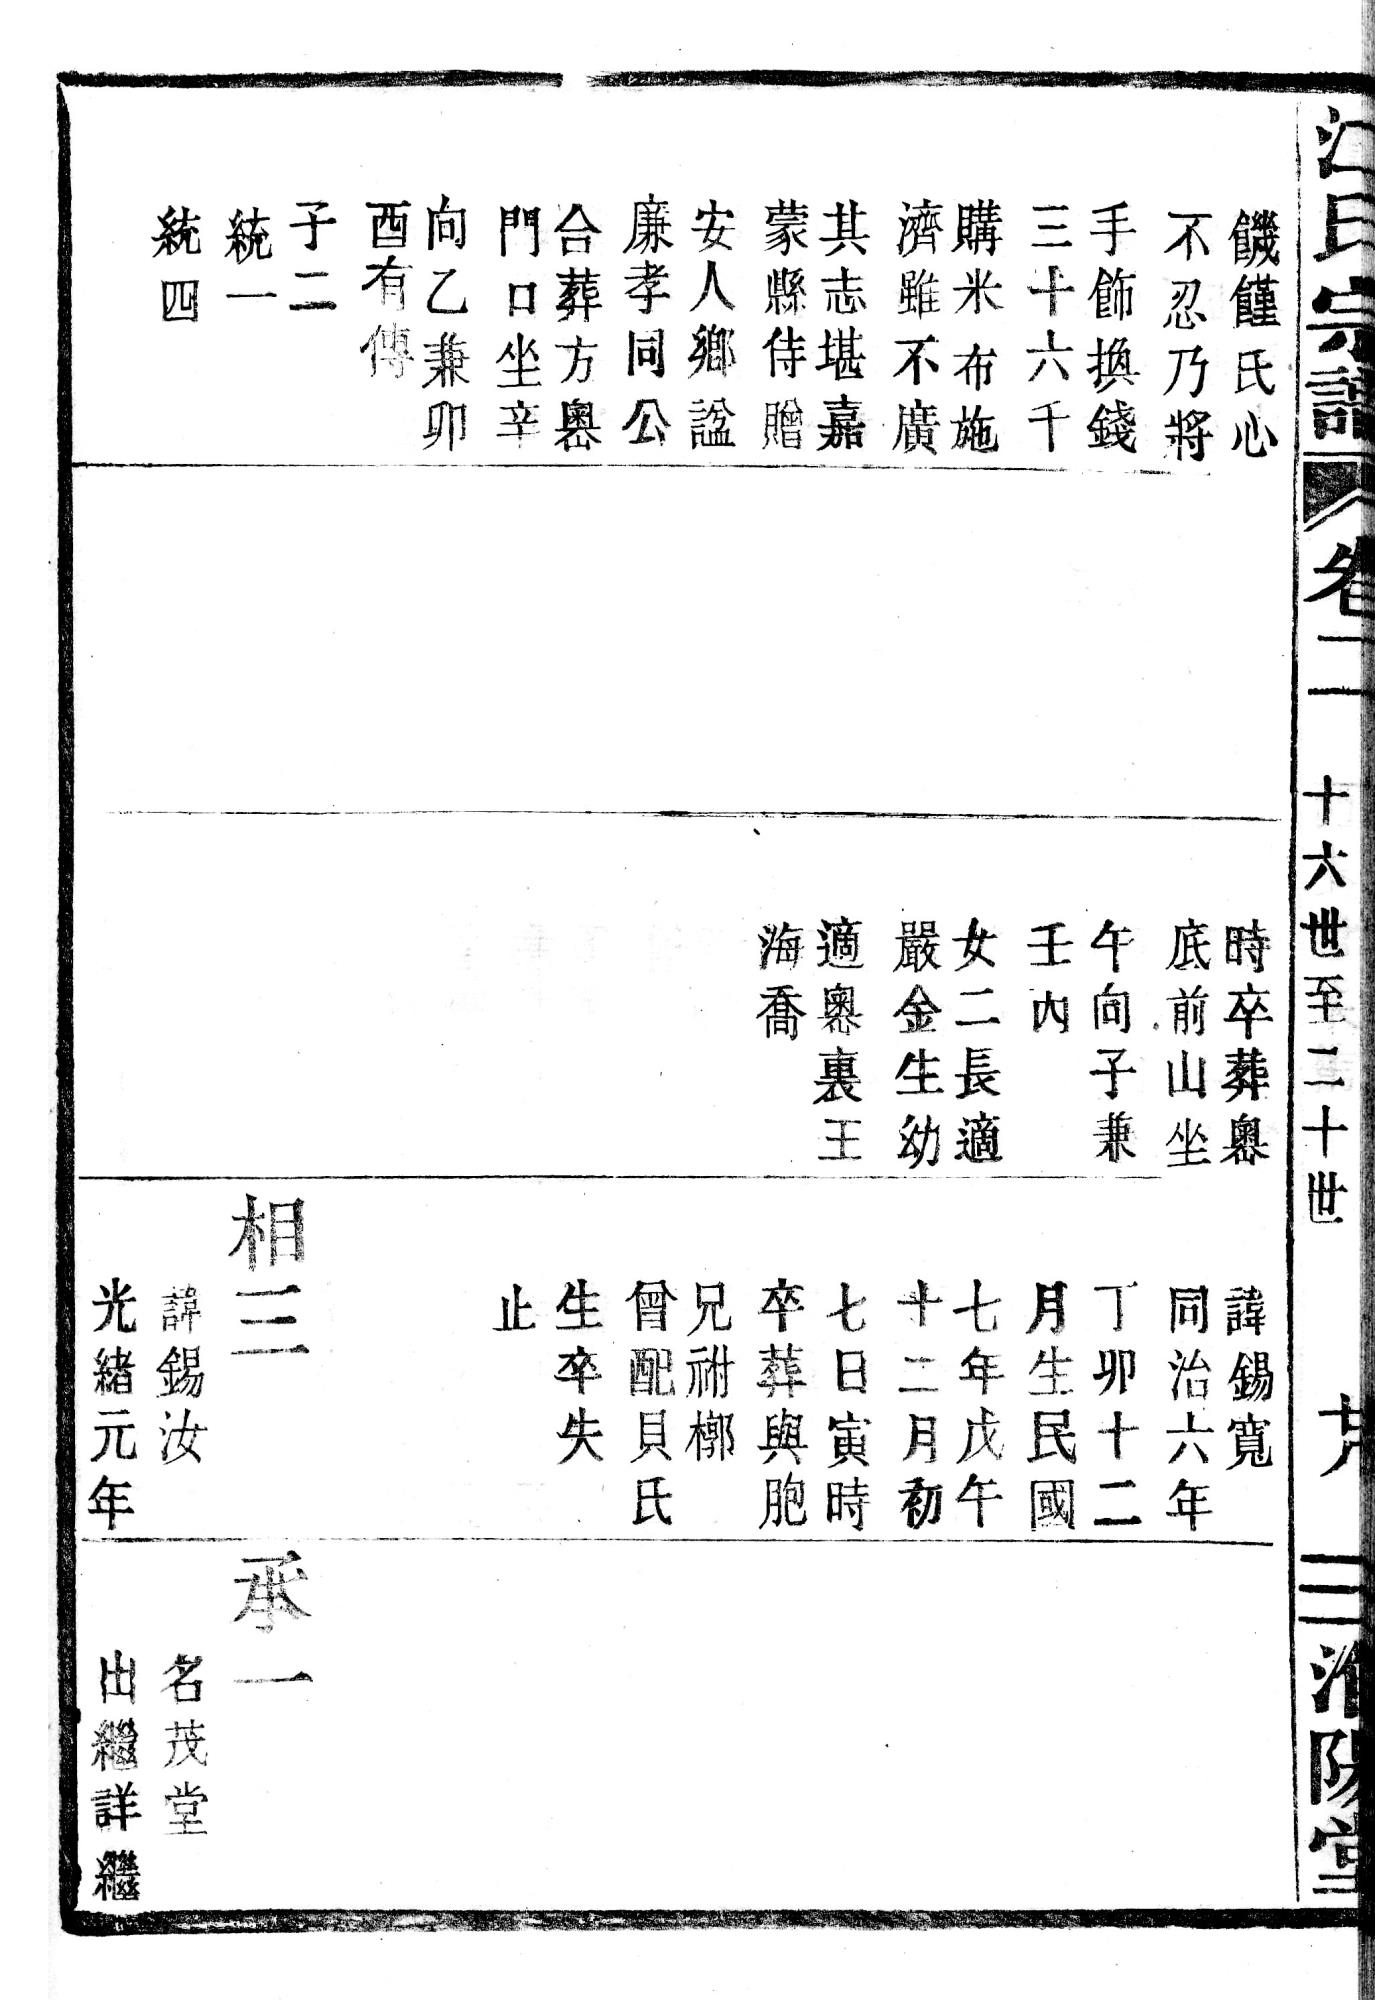 江氏宗譜
卷二
十六世至二十世
廿
淮陽堂
饑饉氏心
不忍乃將
手飾換錢
三十六千
購米布施
濟雖不廣
其志堪嘉
蒙縣侍贈
安人鄉諡
廉孝同公
合葬方奧
門口坐辛
向乙兼卯
酉有傳
子二
統一
統四
時卒葬奧
底前山坐
午向子兼
壬內
女二長適
嚴金生幼
適奧裏王
海喬
諱錫寬
同治六年
丁卯十二
月生民國
七年戊午
十二月初
七日寅時
卒葬與胞
兄祔槨
曾配貝氏
生卒失
止
相三
諱錫汝
光緒元年
承一
名茂堂
出繼詳繼